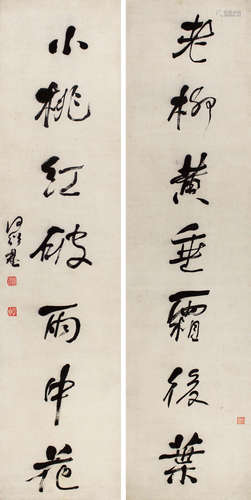 老柳黄垂霜後葉
小桃红破雨中花
何绍基